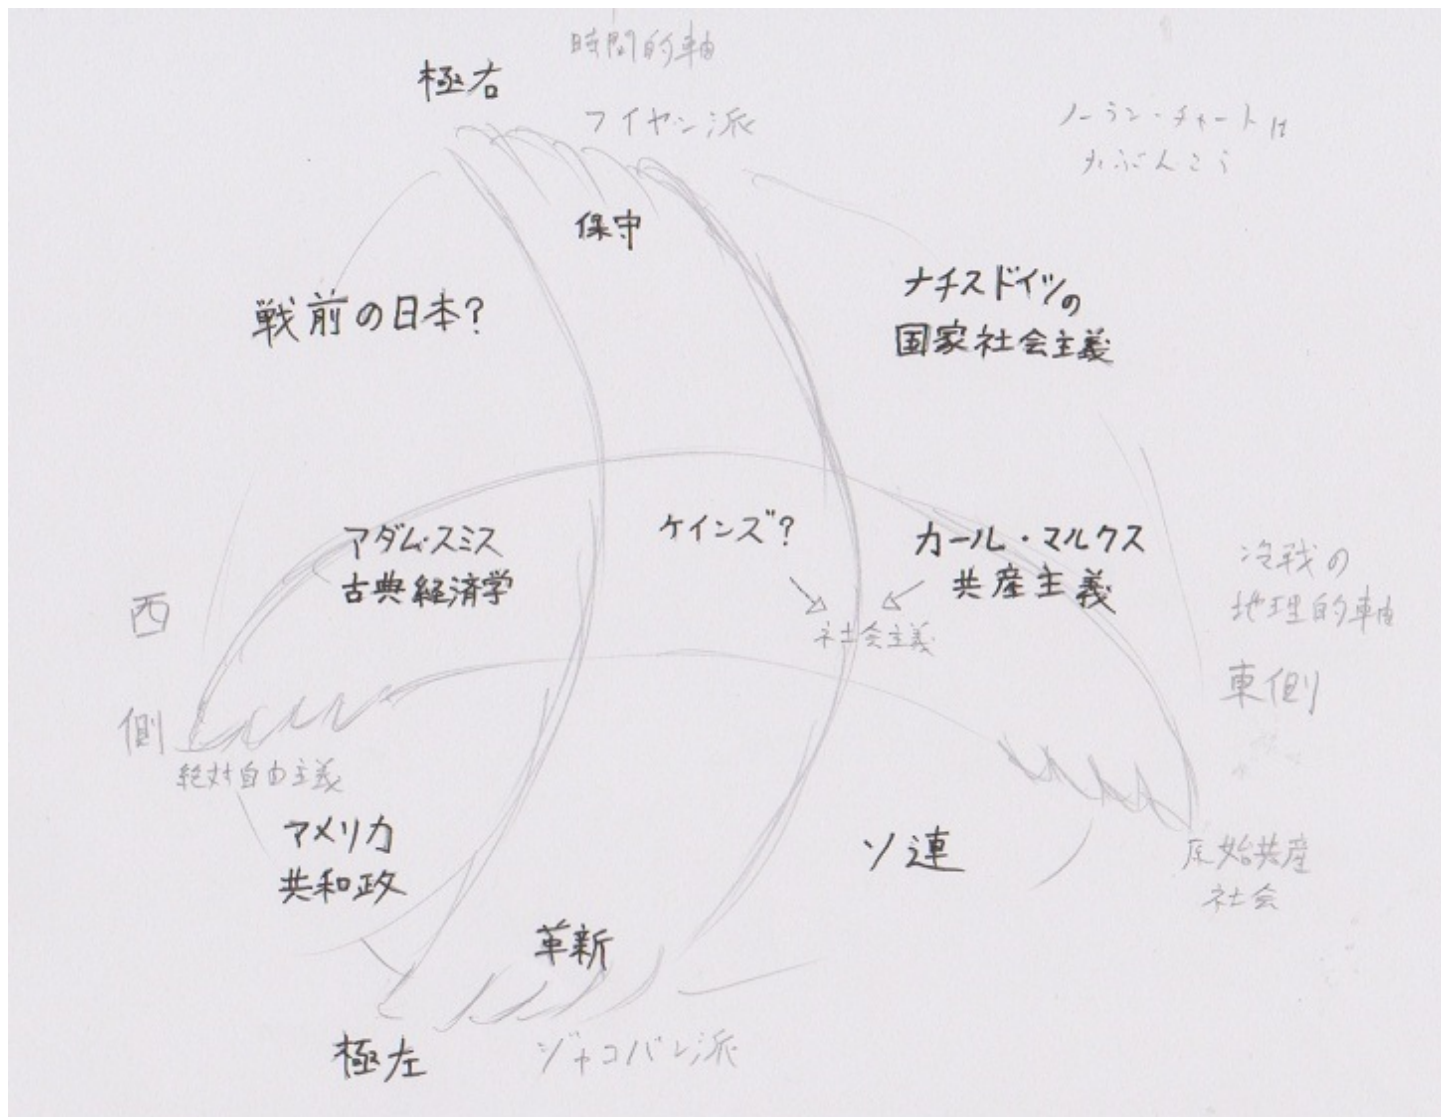 時間的軸
極右
フイヤン派
ノーラン・チャートは
保守
ナチスドイツの
国家社会主義
戦前の日本?
アダム・スミス
古典経済学
ケインズ?
カール・マルクス
共産主義
社会主義
冷戦の
地理的軸
西
側
東側
絶対自由主義
アメリカ
共和政
ソ連
原始共産
社会
革新
極左
ジャコバン派